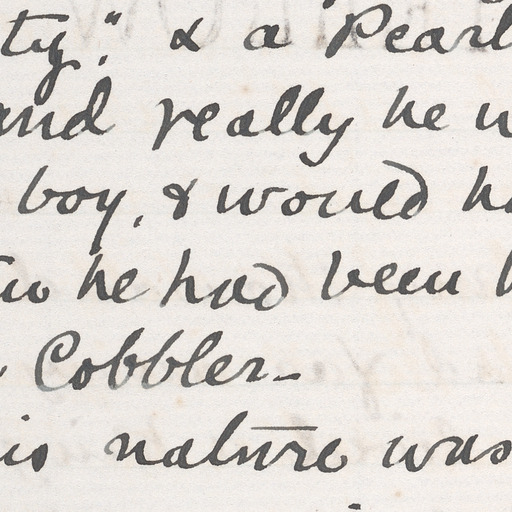 ty", & a Pearl
and really he w
boy, & would ha
he had been b
Cobbler_
is nature was